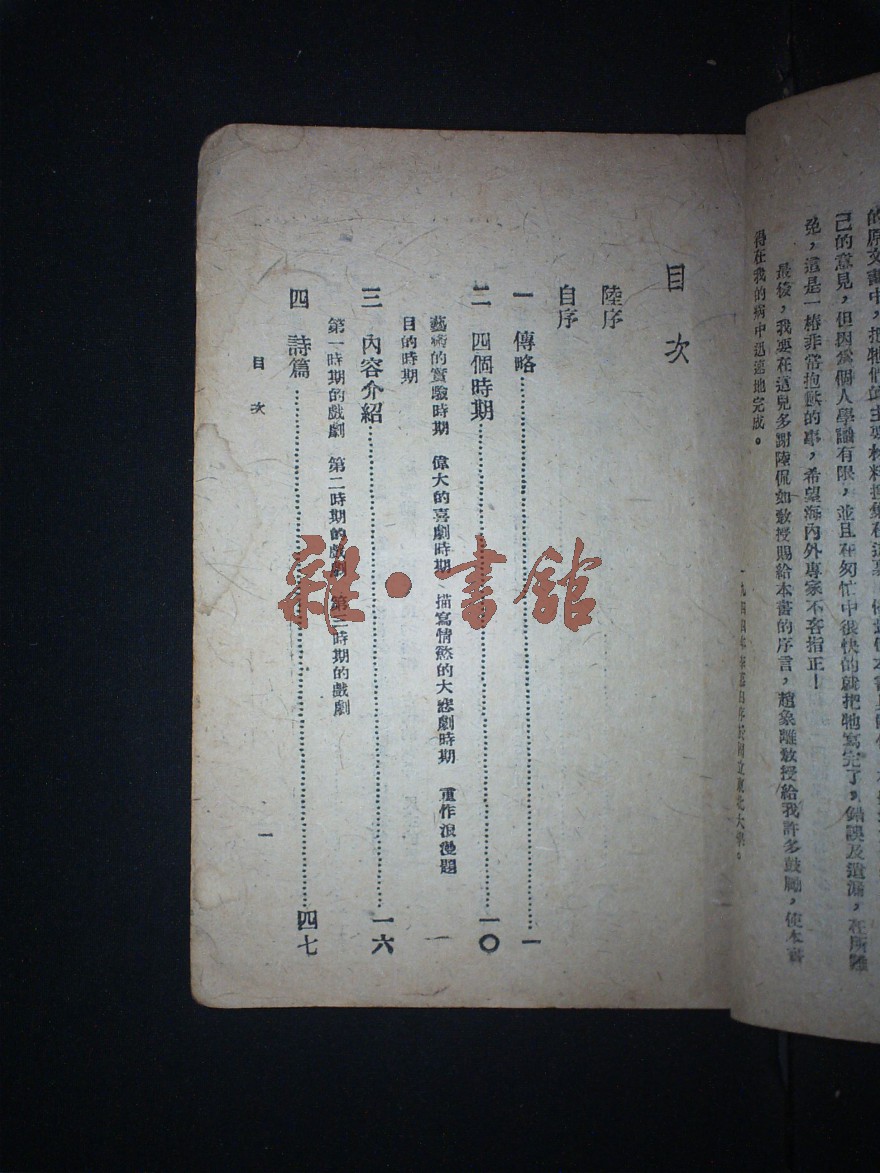 己的意見,但因為個人學識有限,並且在匆忙中很快的就把牠寫完了,錯誤及遺漏,在所難
免,這是一樁非常抱歉的事,希望海內外專家不吝指正!
最後,我要在這兒多謝陸侃如教授賜給本書的序言,趙象離教授給我許多鼓勵,使本書
得在我的病中迅速地完成。
目次
陸序
自序
一 傳略……一
二 四個時期……一〇
藝術的實驗時期 偉大的喜劇時期 描寫情慾的大悲劇時期 重作浪漫題
目的時期
三 內容介紹……一六
第一時期的戲劇 第二時期的戲劇 第三時期的戲劇
四 詩篇……四七
目次
一
雜·書館